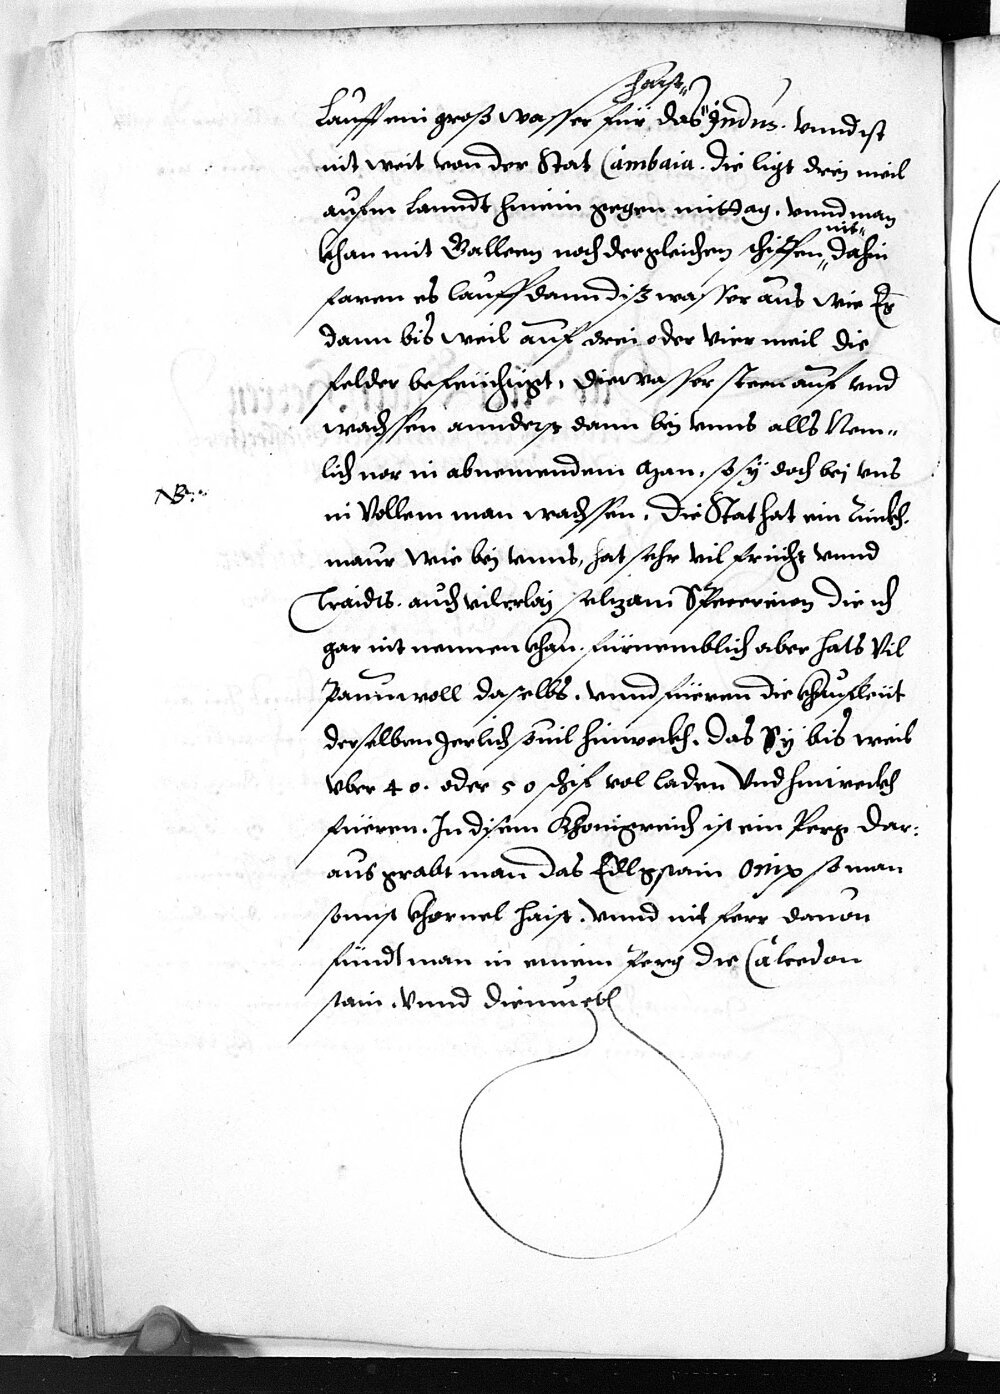 haist
Lauff ein groß wasser für das Jndus. vnnd ist
nit weit von der Stat Cambaia. die ligt drei meil
aufm Lanndt hinein gegen mittag. vnnd man
nit
khan mit Galleen noch dergleichen schiffen dahin
faren es lauff dann diß wasser aus wie Er
dann bis weil auf drei oder vier meil die
felder befeuchtigt, die wasser steen auf vnd
wachssen annderst dann bej vnns alls Nem-
lich nor in abnemendem Man, so sy doch bej vns
NB.
in vollem man wachssen. Die Stat hat ein Rinckh-
maur wie bej vnns, hat sehr vil frücht vnnd
Traidts. auch vilerlaj selzam Specereien die ich
gar nit nennen khan. fürnemblich aber hats vil
Paumwoll daselbs. vnnd füeren die khaufleüt
derselben Jerlich souil hinweckh. das Sy bis weil
vber 40. oder 50 schif vol laden vnd hinweckh
füeren. In disem Khonigreich ist ein Perg dar-
aus grabt man das Edlgstain Onix so man
sonnst khornel haist. vnnd nit ferr dauon
findt man in einem Perg die Calcedon
stain. vnnd diemuet